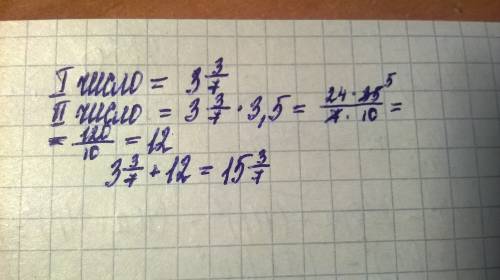 I число = 3 3/7
II число = 3 3/7 · 3,5 = 24 · 35 5 / 7 · 10 =
= 120/10 = 12
3 3/7 + 12 = 15 3/7